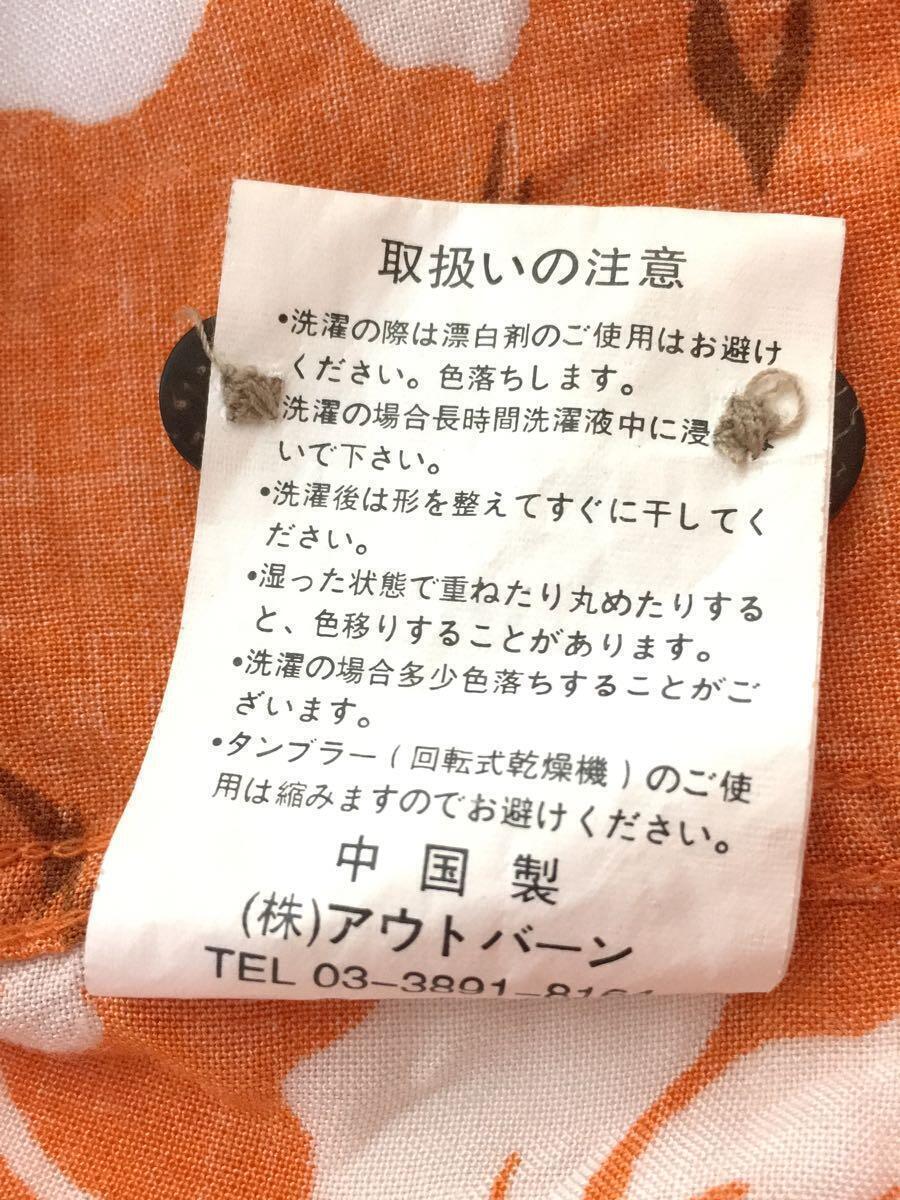 取扱いの注意
•洗濯の際は漂白剤のご使用はお避け
ください。色落ちします。
洗濯の場合長時間洗濯液中に浸
いで下さい。
•洗濯後は形を整えてすぐに干してく
ださい。
•湿った状態で重ねたり丸めたりする
と、色移りすることがあります。
•洗濯の場合多少色落ちすることがご
ざいます。
•タンブラー(回転式乾燥機)のご使
用は縮みますのでお避けください。
中国製
(株)アウトバーン
TEL 03-3891-